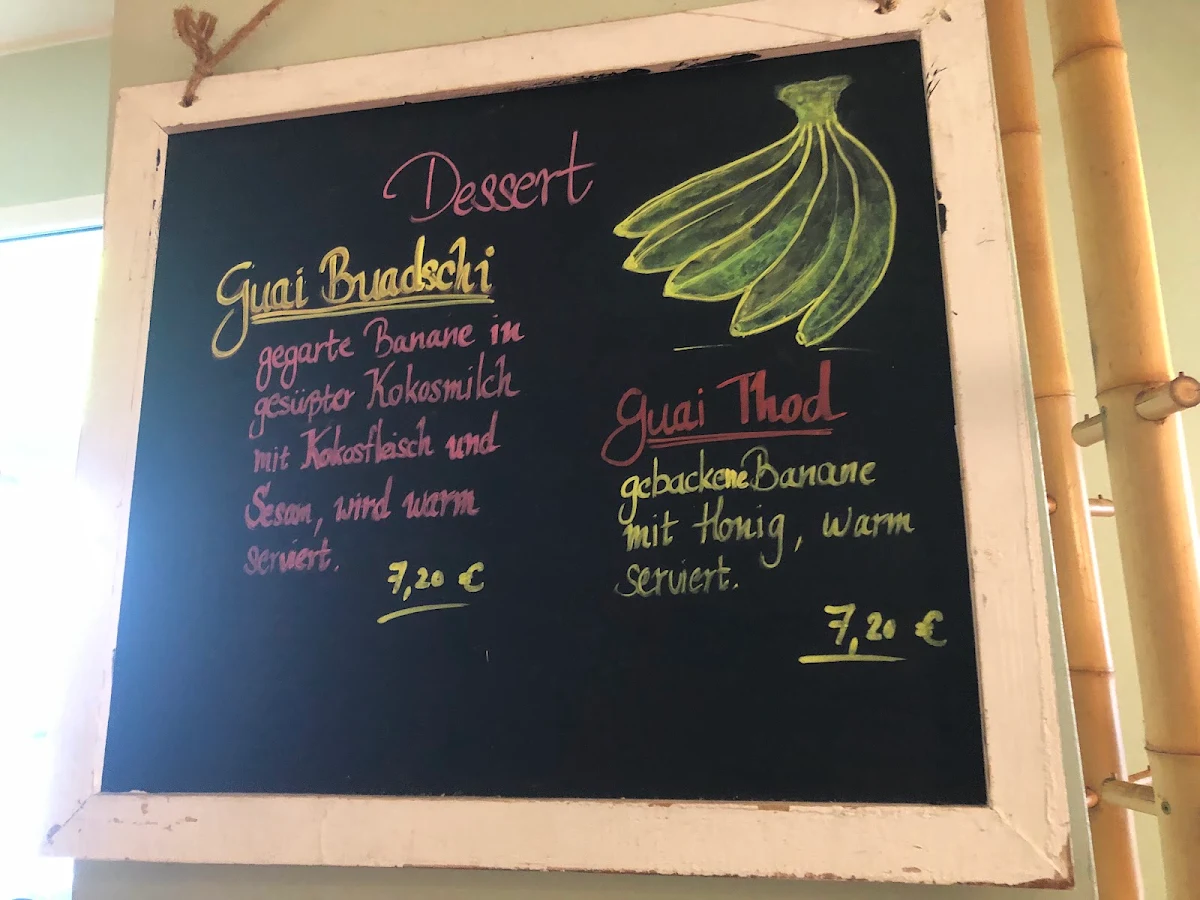 Dessert
Guai Buadschi
gegarte Banane in
gesüßter Kokosmilch
mit Kokosfleisch und
Sesam, wird warm
serviert.
7,20 €
Guai Thod
gebackene Banane
mit Honig, warm
serviert.
7,20 €